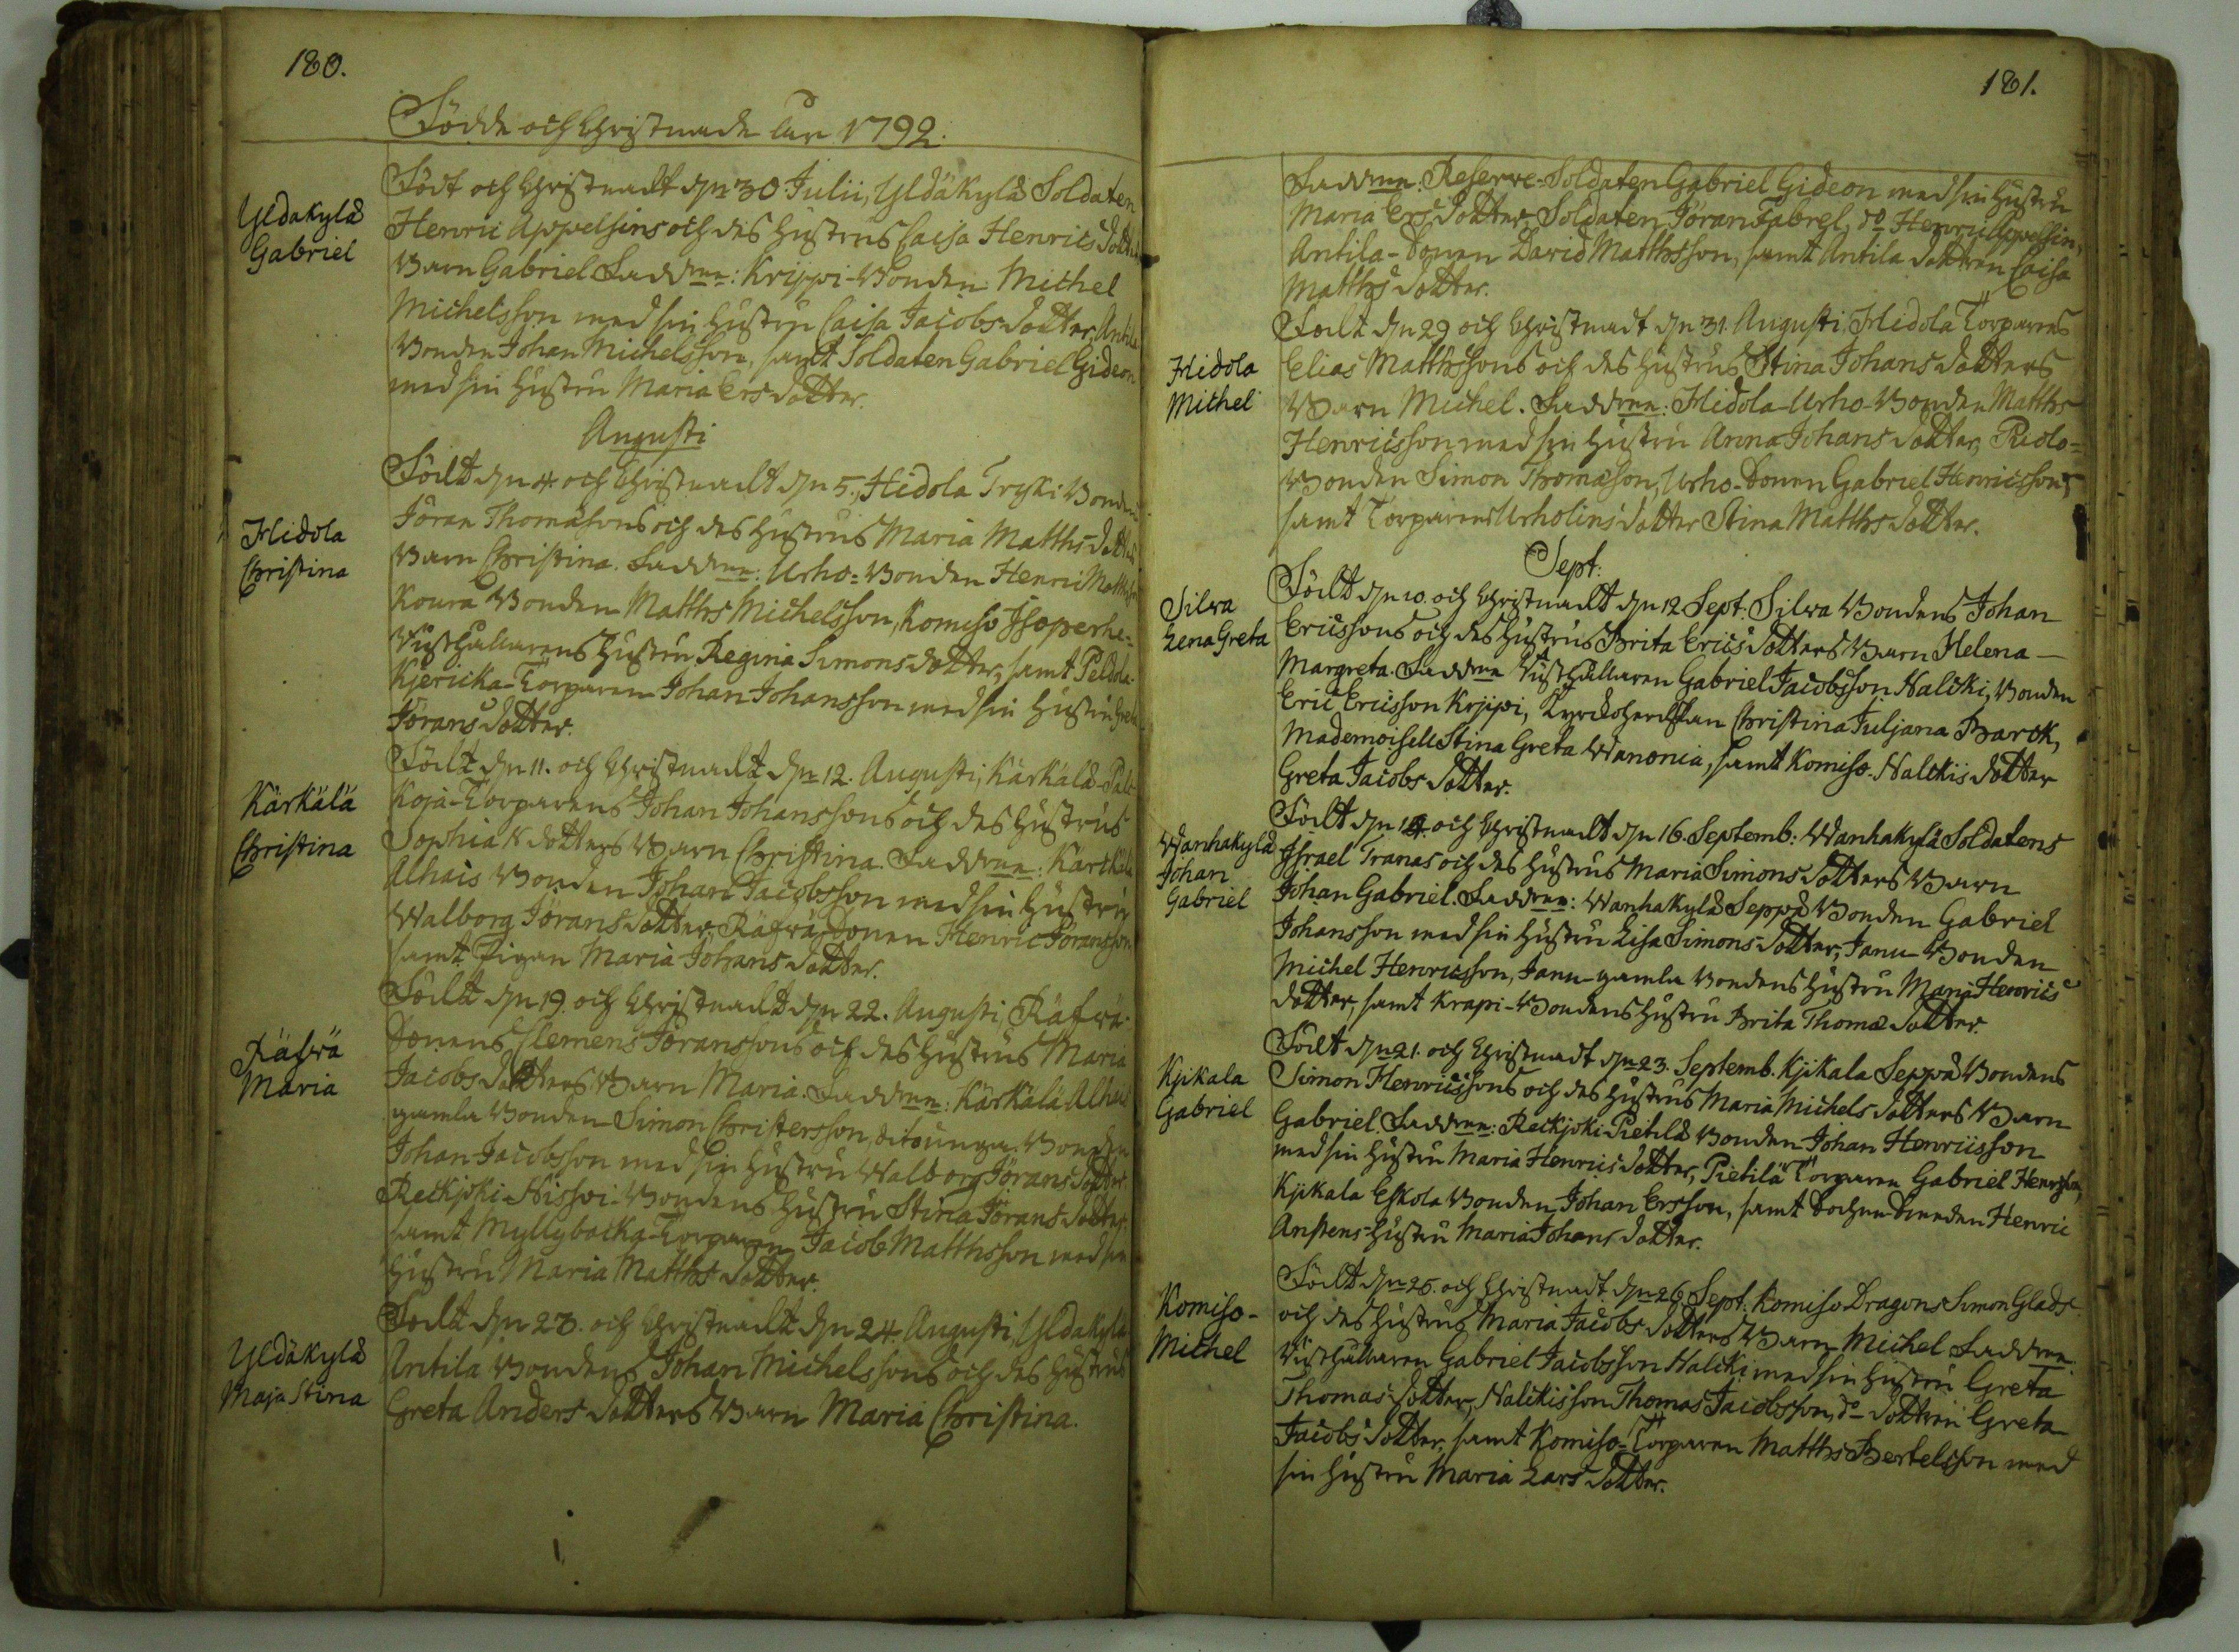 180.
Födde och Christnade åhr 1792.
Yldäkylä
Gabriel
Födt och Christnadt dn 30 Julii, Yldäkylä Soldaten
Henric Appelsins och des hustrus Caisa Henrics dotters
Barn Gabriel Faddrar: Krippi-Bonden Michel
Michelsson med sin hustru Caisa Jacobs dotter, Antila
Bonden Johan Michelsson, samt Soldaten Gabriel Gideon
med sin hustru Maria Ers dotter.
Augusti
Hidola
Christina
Födt dn 4. och Christnadt dn 5., Hidola Tryki Bondens
Jöran Thomæsons och des hustrus Maria Matths dotters
Barn Christina. Faddrar: Urho-Bonden Henric Matthsson
Koura Bonden Matths Michelsson, Komiso
hustru Regina Simons dotter, samt Peldola
Kjericka-Torparen Johan Johansson med sin hustru Greta
Jörans dotter.
Kärkälä
Christina
Födt dn 11. och Christnadt dn 12. Augusti, Kärkälä
Koja-Torparens Johan Johanssons och des hustrus
Sophia N dotters Barn Christina. Faddrar: Kärckälä
Alhais Bonden Johan Jacobsson med sin hustru
Walborg Jörans dotter, Räfwä Sonen Henric Jöransson
samt Pigan Maria Johans dotter.
Räfwä
Maria
Födt dn 19. och Christnadt dn 22. Augusti, Räfwä-
Sonens Clemens Jöranssons och des hustrus Maria
Jacobs dotters Barn Maria. Faddrar: Kärkälä Alhais
gamla Bonden Simon Christersson, dito unga Bonden
Johan Jacobsson med sin hustru Walborg Jörans dotter
Reckjoki-Nissvi-Bondens hustru Stina Jörans dotter
samt Myllybacka-Torparen Jacob Matthsson med sin
hustru Maria Matths dotter.
Yldäkylä
Maja Stina
Födt dn 23. och Christnadt dn 24. Augusti, Yldäkylä
Antila Bondens Johan Michelssons och des hustrus
Greta Anders dotters Barn Maria Christina.
181.
Faddrar: Reserve-Soldaten Gabriel Gideon med sin hustru
Maria Ers dotter, Soldaten Jöran Fabrel, do Henric Appelsin,
Antila-Sonen David Matthsson, samt Antila dottren Caisa
Matths dotter.
Hidola
Michel
Födt dn 29 och Christnadt dn 31. Augusti, Hidola Torparens
Elias Matthssons och des hustrus Stina Johans dotters
Barn Michel. Faddrar: Hidola-Urho-Bonden Matths
Henricsson med sin hustru Anna Johans dotter,
Bonden Simon Thomasson, Urho-Sonen Gabriel Henricsson,
samt Torparens Urholins dotter Stina Matths dotter.
Sept:
Silwa
Lena Greta
Födt dn 10. och Christnadt dn 12 Sept: Silwa Bondens Johan
Ericssons och des hustrus Brita Erics dotters Barn Helena
Margreta. Faddrar Gabriel Jacobsson Nalcki, Bonden
Eric Ericsson Krjipi, Kyrckoherdskan Christina Juljana Barck,
Mademoiselle Stina Greta Wanonia, samt Komiso-Nalckis dotter
Greta Jacobs dotter.
Wanhakylä
Johan
Gabriel
Födt dn 14. och Christnadt dn 16. Septemb: Wanhakylä Soldatens
Israel Tranas och des hustrus Maria Simons dotters Barn
Johan Gabriel. Faddrar: Wanhakylä Seppä Bonden Gabriel
Johansson med sin hustru Lisa Simons dotter, Janu-Bonden
Michel Henricsson, Janu-gamla Bondens hustru Maria Henrics
dotter, samt Krapi-Bondens hustru Brita Thomæ dotter.
Kjikala
Gabriel
Födt dn 21. och Christnadt dn 23. Septemb. Kjikala Seppä Bondens
Simon Henricssons och des hustrus Maria Michels dotters Barn
Gabriel. Faddrar: Reckjoki Pietilä Bonden Johan Henricsson
med sin hustru Maria Henrics dotter, Pietilä Torparen Gabriel Henricsson,
Kjikala Eskola Bonden Johan Ersson, samt Henric
Anstens hustru Maria Johans dotter.
Komiso-
Michel
Födt dn 25. och Christnadt dn 26 Sept: Komiso Dragons Simon Glads
och des hustrus Maria Jacobs dotters Barn Michel Faddrar
Gabriel Jacobsson Nalcki med sin hustru Greta
Thomas dotter, Nalckis son Thomas Jacobsson, do dottren Greta
Jacobs dotter, samt Komiso-Torparen Matths Bertelsson med
sin hustru Maria Lars dotter.